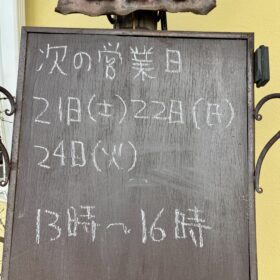 次の営業日
21日(土)22日(日)
24日(火)
13時〜16時